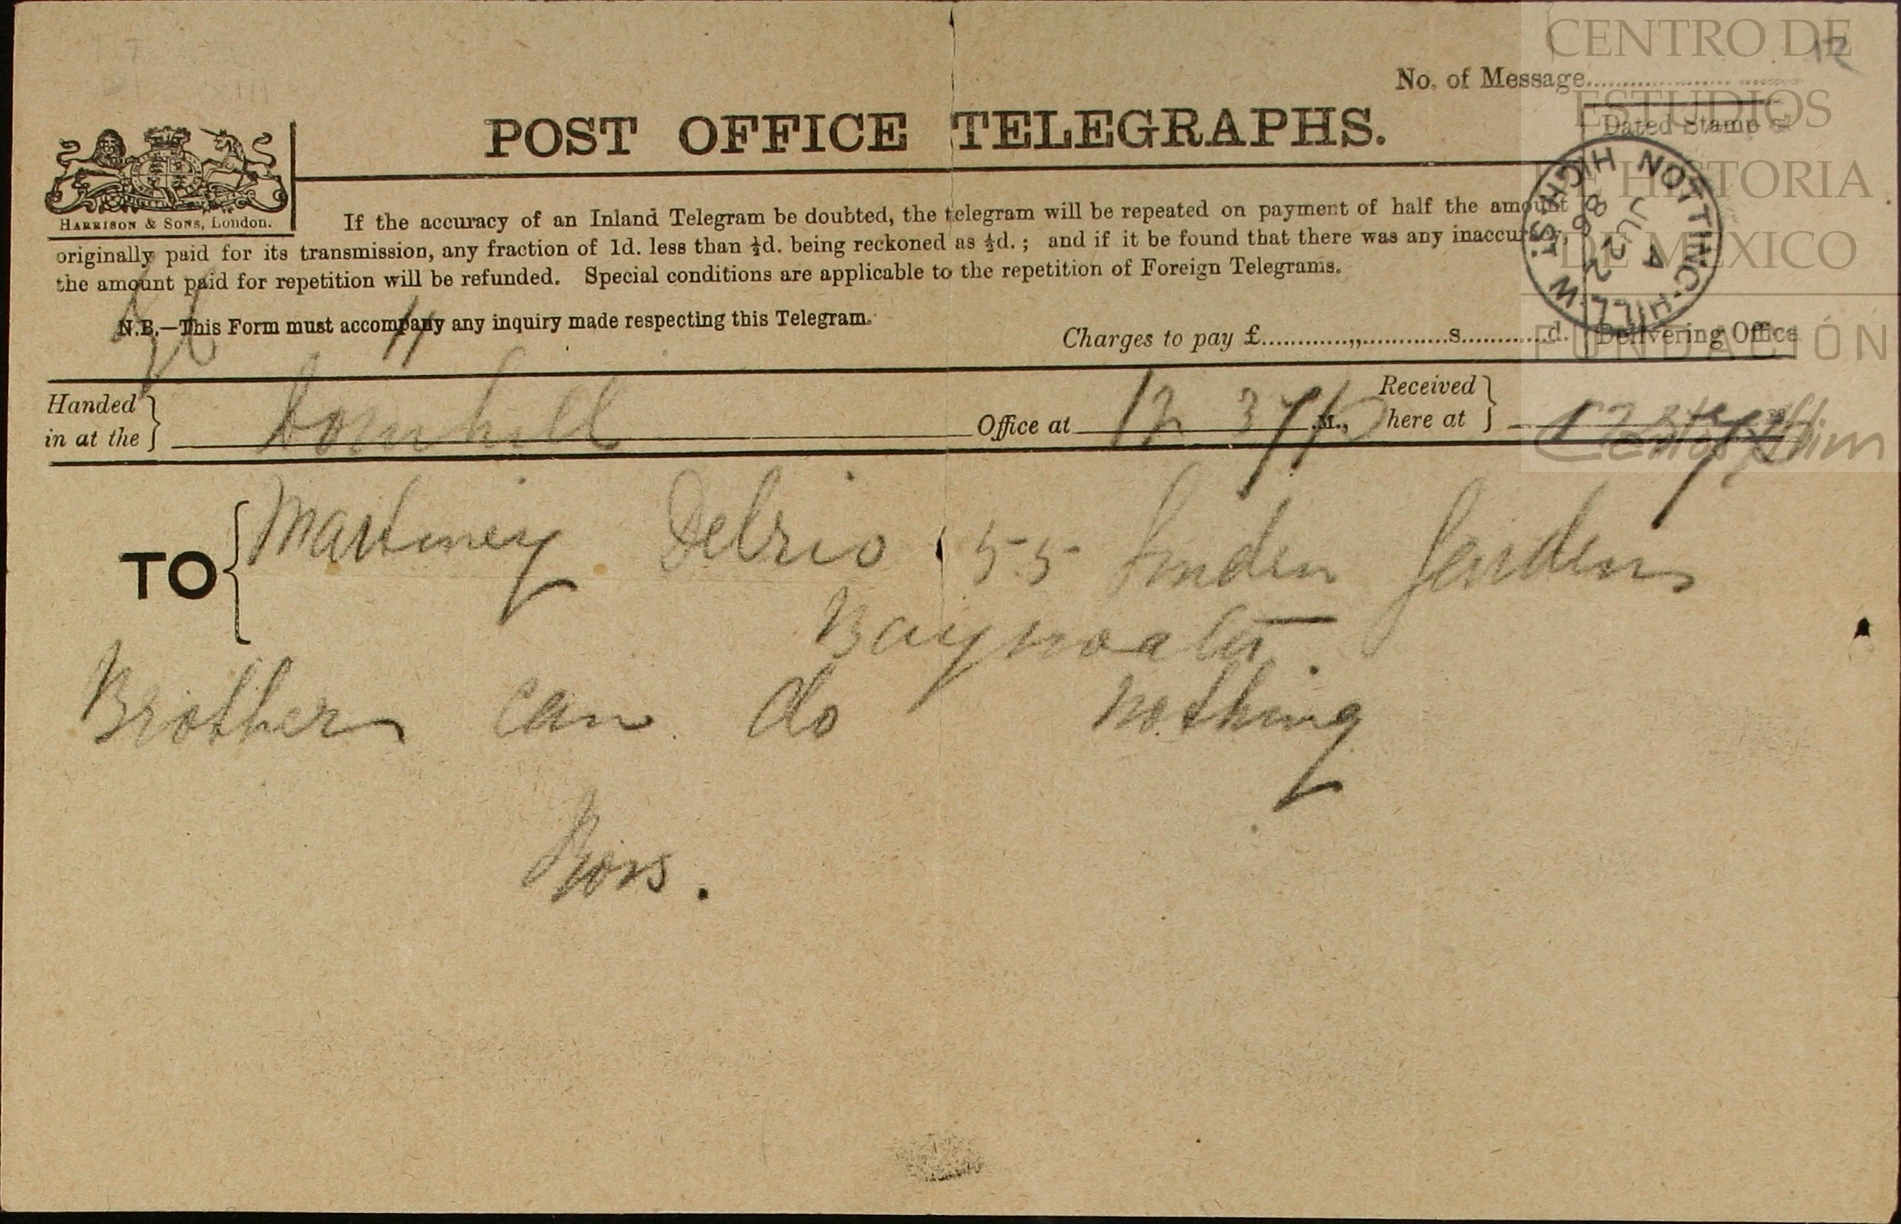 CENTRO DE
ESTUDIOS
DE HISTORIA
DE MÉXICO
FUNDACIÓN
Carlos Slim
12
No. of Message
POST OFFICE TELEGRAPHS.
Dated Stamp of
NOTTING-HILL HIGH ST. W
A
JU 22
86
HARRISON & SONS, London.
If the accuracy of an Inland Telegram be doubted, the telegram will be repeated on payment of half the amount
originally paid for its transmission, any fraction of 1d. less than ½d. being reckoned as ½d.; and if it be found that there was any inaccuracy,
the amount paid for repetition will be refunded. Special conditions are applicable to the repetition of Foreign Telegrams.
N.B.—This Form must accompany any inquiry made respecting this Telegram.
Charges to pay £ s. d.
Delivering Office
Handed in at the Cornhill Office at 12 37 p M., Received here at
TO Martiney Delrio 55 Linden Gardens
Bayswater
Brother can do nothing
Ross.